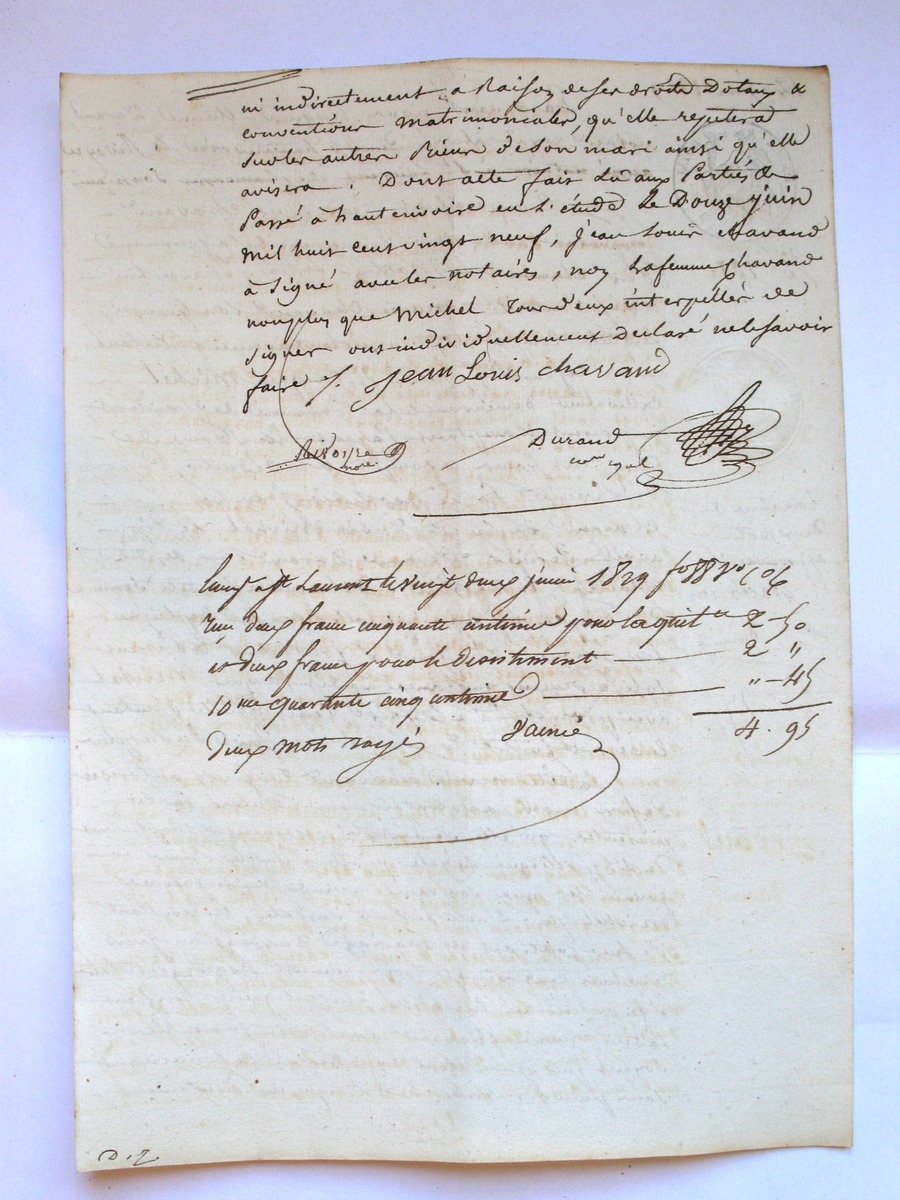 ni indirectement a Raison de ses droits Dotaux &
conventions matrimoniales, qu'elle rejetera
sur les autres Biens de son mari ainsi qu'elle
avisera. Dont acte fait Lu aux Parties &
Passé à hauterivoire en L'étude Le Douze juin
mil huit cent vingt neuf, jean Louis chavand
à signé avec les notaires, non La femme Chavand
non plus que Michel tous deux interpellés de
signer ont individuellement Declaré ne le savoir
faire /. Jean Louis chavand
Durand
a St Laurent le vingt deux juin 1829 fo 88 vo c 6
deux francs cinquante centimes pour la quit ce 2 - 50
et deux francs pour le desistiment 2 "
10 me quarante cinq centimes " - 45
deux mots rayés 4. 95
D. 2.